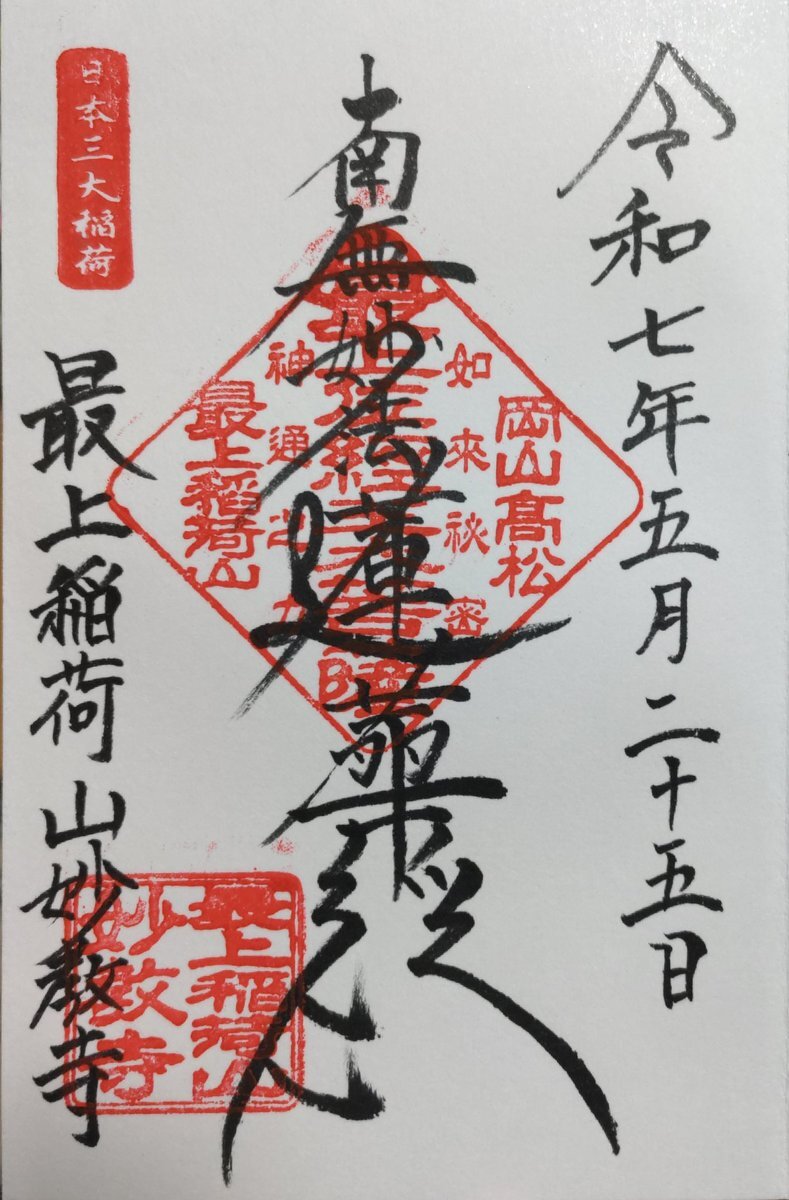 令和七年五月二十五日
南無妙法蓮華経
岡山高松
如来秘密
神通之力
最上稲荷山
日本三大稲荷
最上稲荷山妙教寺
最上稲荷山
妙教寺